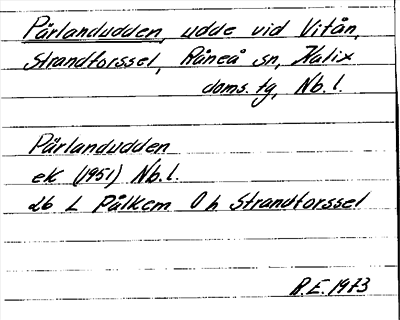 Pärlandudden, udde vid Vitån,
Strandforssel, Råneå sn, Kalix
doms. tg, Nb. l.
Pärlandudden
ek (1951) Nb. l.
26 L Pålkem Ö h Strandforssel
R.E. 1973